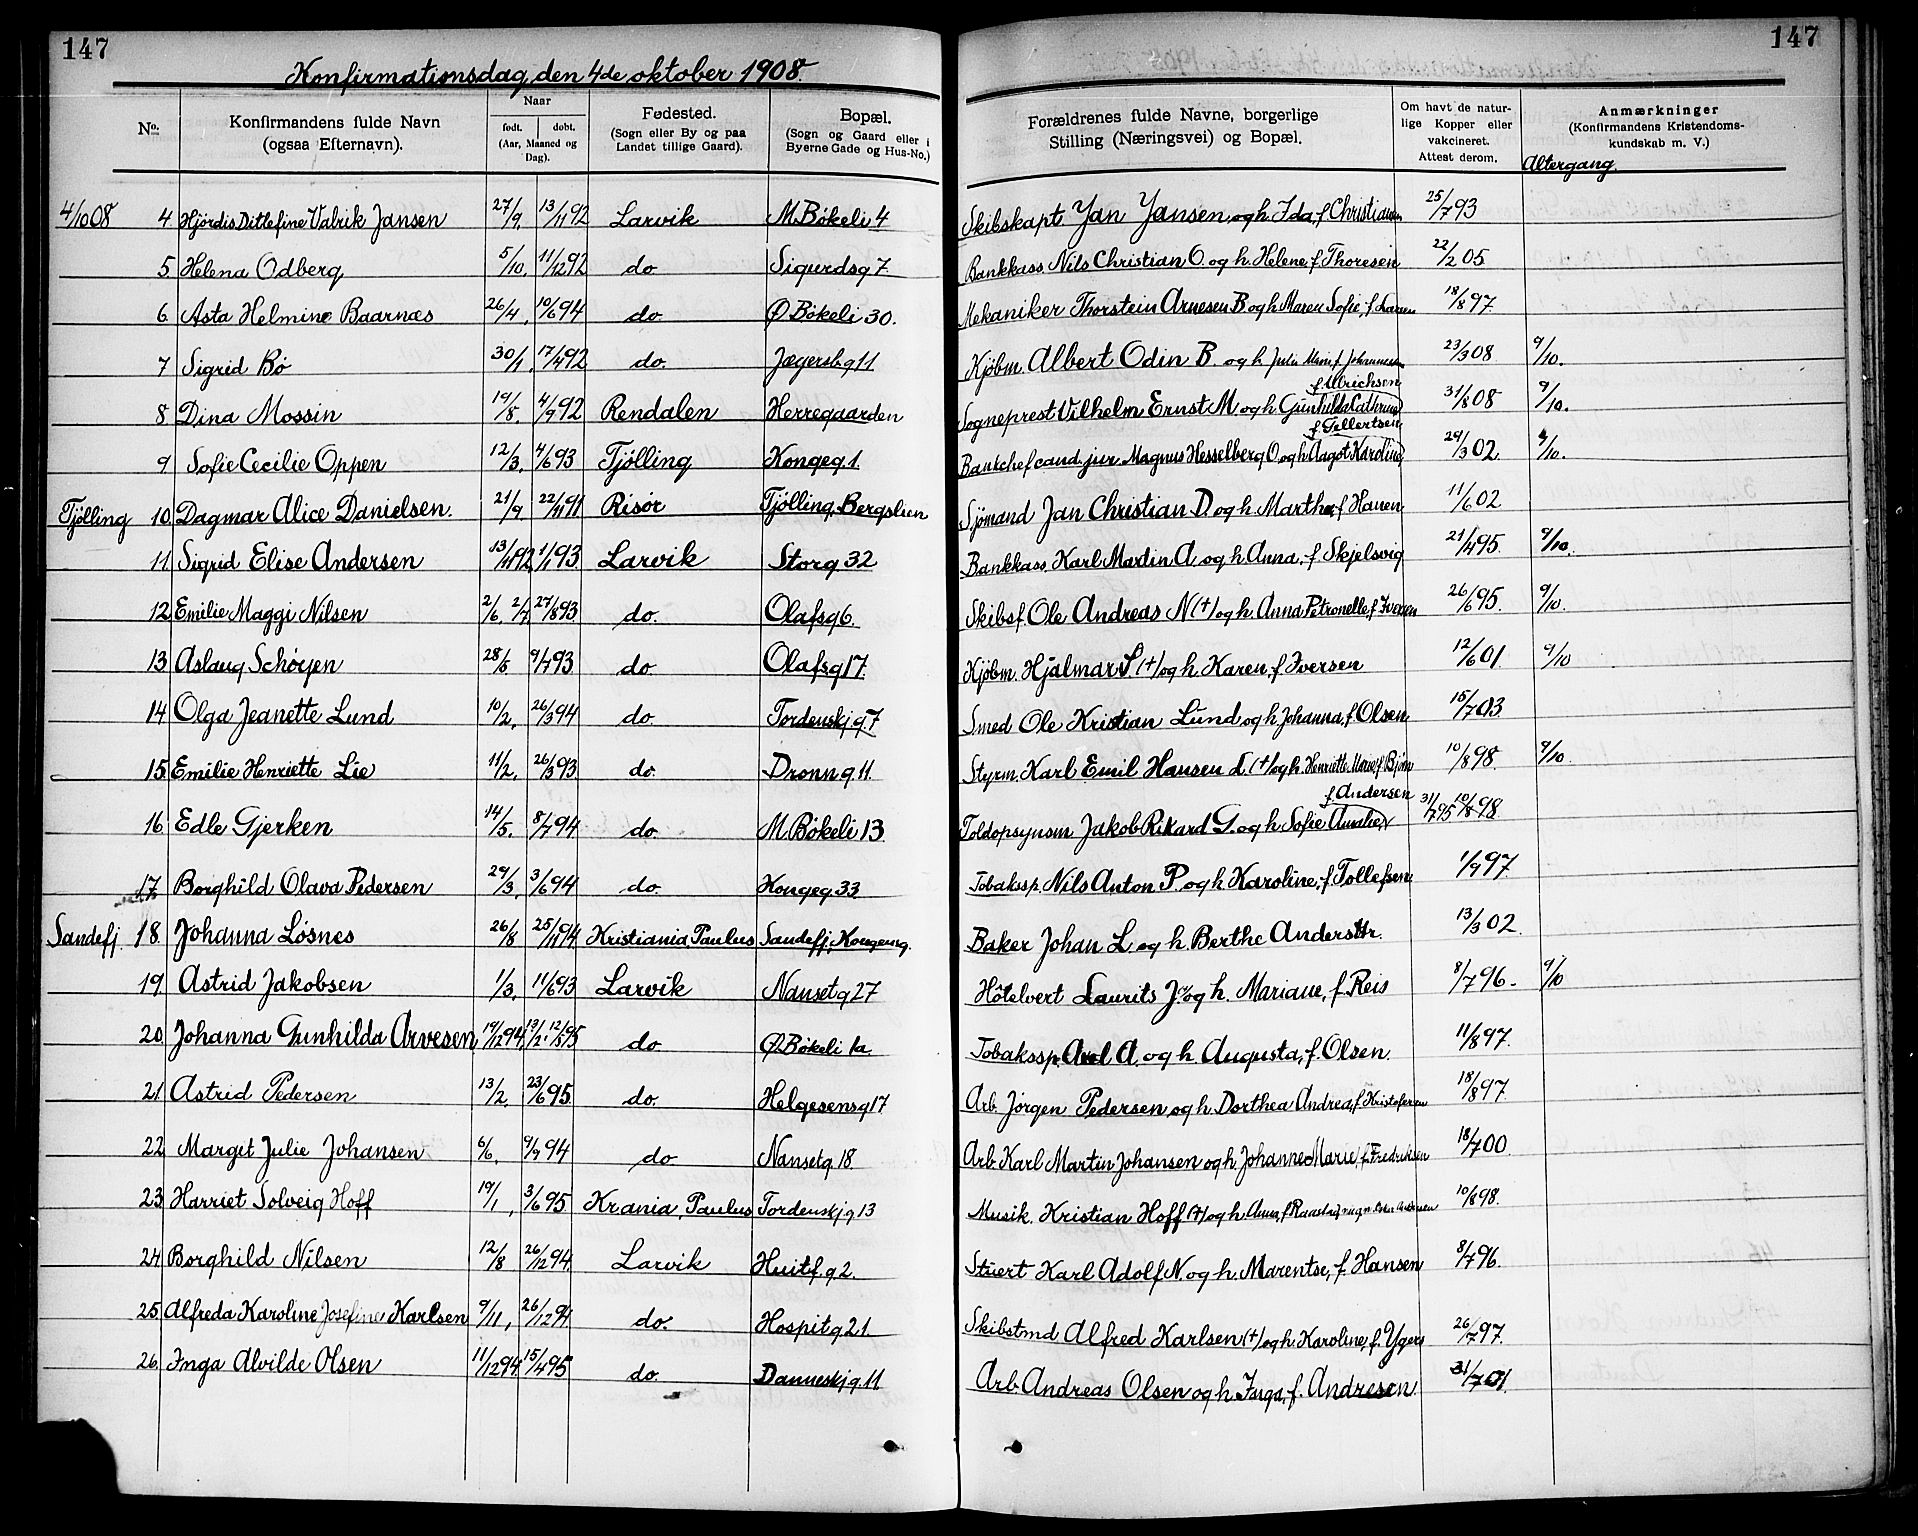 147
147
Konfirmationsdag den 4de oktober 1908.
No.
Konfirmandens fulde Navn (ogsaa Efternavn).
Naar
født. døbt.
(Aar, Maaned og Dag).
Fødested.
(Sogn eller By og paa Landet tillige Gaard).
Bopæl.
(Sogn og Gaard eller i Byerne Gade og Hus-No.)
Forældrenes fulde Navne, borgerlige Stilling (Næringsvei) og Bopæl.
Om havt de naturlige Kopper eller vakcineret. Attest derom.
Anmærkninger
(Konfirmandens Kristendomskundskab m. V.)
Altergang.
4/10 08 4 Hjördis Ditlefine Valrik Jansen 27/9. 13/11 92 Larvik M Bökeli 4 Skibskapt Jan Jansen og h. Ida, f Christiansen 25/7 93
5 Helena Odberg 5/10. 11/12 92 do Sigurdsg 7 Bankkass Nils Christian O. og h. Helene f Thoresen 22/2 05
6 Asta Helmine Baarnæs 26/4. 10/6 94 do. Ø Bökeli 30. Mekaniker Thorstein Arnesen B og h Maren Sofie, f Larsen 18/8 97.
7 Sigrid Bø 30/1. 17/4 92 do. Jægersbg 11 Kjøbm. Albert Odin B. og h Julie Marie f Johannessen 23/3 08 9/10.
8 Dina Mossin 19/8. 4/9 92 Rendalen Herregaarden Sogneprest Vilhelm Ernst M. og h Gunhilda Cathrine f Ullrichsen 31/8 08 9/10.
9 Sofie Cecilie Oppen 12/3. 4/6 93 Tjölling Kongeg 1. Bankchef cand. jur. Magnus Hesselberg O og h Aagot Karoline f. Gellertsen 29/3 02. 9/10.
Tjölling 10 Dagmar Alice Danielsen. 21/9. 22/11 91 Risör Tjölling, Bergslien Sjömand Jan Christian D. og h. Marthe, f Hansen 11/6 02
11 Sigrid Elise Andersen 13/11 92 1/1 93 Larvik Storg 32 Bankkass. Karl Martin A og h. Anna, f. Skjelsvig 21/4 95. 9/10.
12 Emilie Maggi Nilsen 2/6. 2/7 27/8 93 do. Olafsg 6. Skibsf. Ole Andreas N (+) og h. Anna Petronelle f Iversen 26/6 95. 9/10.
13 Aslaug Schöyen 28/5 9/7 93 do. Olafsg 17. Kjöbm. Hjalmar S (+) og h. Karen, f Iversen 12/6 01. 9/10
14 Olga Jeanette Lund 10/2. 26/3 94 do Tordenskj g 7 Smed Ole Kristian Lund og h. Johanna, f Olsen 15/7 03.
15 Emilie Henriette Lie 11/2. 26/3 93 do. Dronn g 11. Styrm. Karl Emil Hansen L. (+) og h. Henriette Marie f Björn 10/8 98. 9/10.
16 Edle Gjerken 14/5. 8/7 94 do M Bökeli 13 Toldopsynsm Jakob Rikard G. og h Sofie Amalie, f Andersen 31/7 95 10/8 98.
17 Borghild Olava Pedersen 29/3. 3/6 94 do. Kongeg. 33 Tobakssp. Nils Anton P. og h Karoline, f Tollefsen 1/9 97
Sandefj. 18. Johanna Lösnes 26/8 25/11 94 Kristiania, Paulus Sandefj, Kongeng. Baker Johan L. og h. Berthe Andersdtr. 13/3 02
19. Astrid Jakobsen 1/3. 11/6 93 Larvik Nanset g 27 Hôtelvert Laurits J. og h. Mariane, f. Reis 8/7 96 9/10
20. Johanna Gunhilda Arvesen 19/12 94. 13/2. 12/5 95 do Ø. Bökeli 1a. Tobakssp. Axel A. og h. Augusta, f. Olsen. 11/8 97.
21 Astrid Pedersen 13/2. 23/6 95. do. Helgesens g 17 Arb. Jörgen Pedersen og h. Dorthea Andrea, f Kristofersen 18/8 97.
22 Margit Julie Johansen 6/6. 9/9 94 do Nansetg. 18. Arb. Karl Martin Johansen og h. Johanne Marie, f. Fredriksen 18/7 00.
23 Harriet Solveig Hoff 19/1, 3/6 95 Krania, Paulus Tordenskj g 13 Musik. Kristian Hoff (+) og h. Anna, f 10/8 98.
24 Borghild Nilsen 12/8 26/12 94. Larvik Huitf. g 2. Stuert Karl Adolf N. og h. Marentse, f. Hansen 8/7 96.
25. Alfreda Karoline Josefine Karlsen 9/11, 26/12 94 do. Hospit g 21. Skibstmd Alfred Karlsen (+) og h. Karoline, f. Ygers 26/7 97.
26. Inga Alvilde Olsen 11/12 94. 15/4 95 do Danneskj g. 11 Arb. Andreas Olsen og h. Inga, f. Andresen 31/7 01.